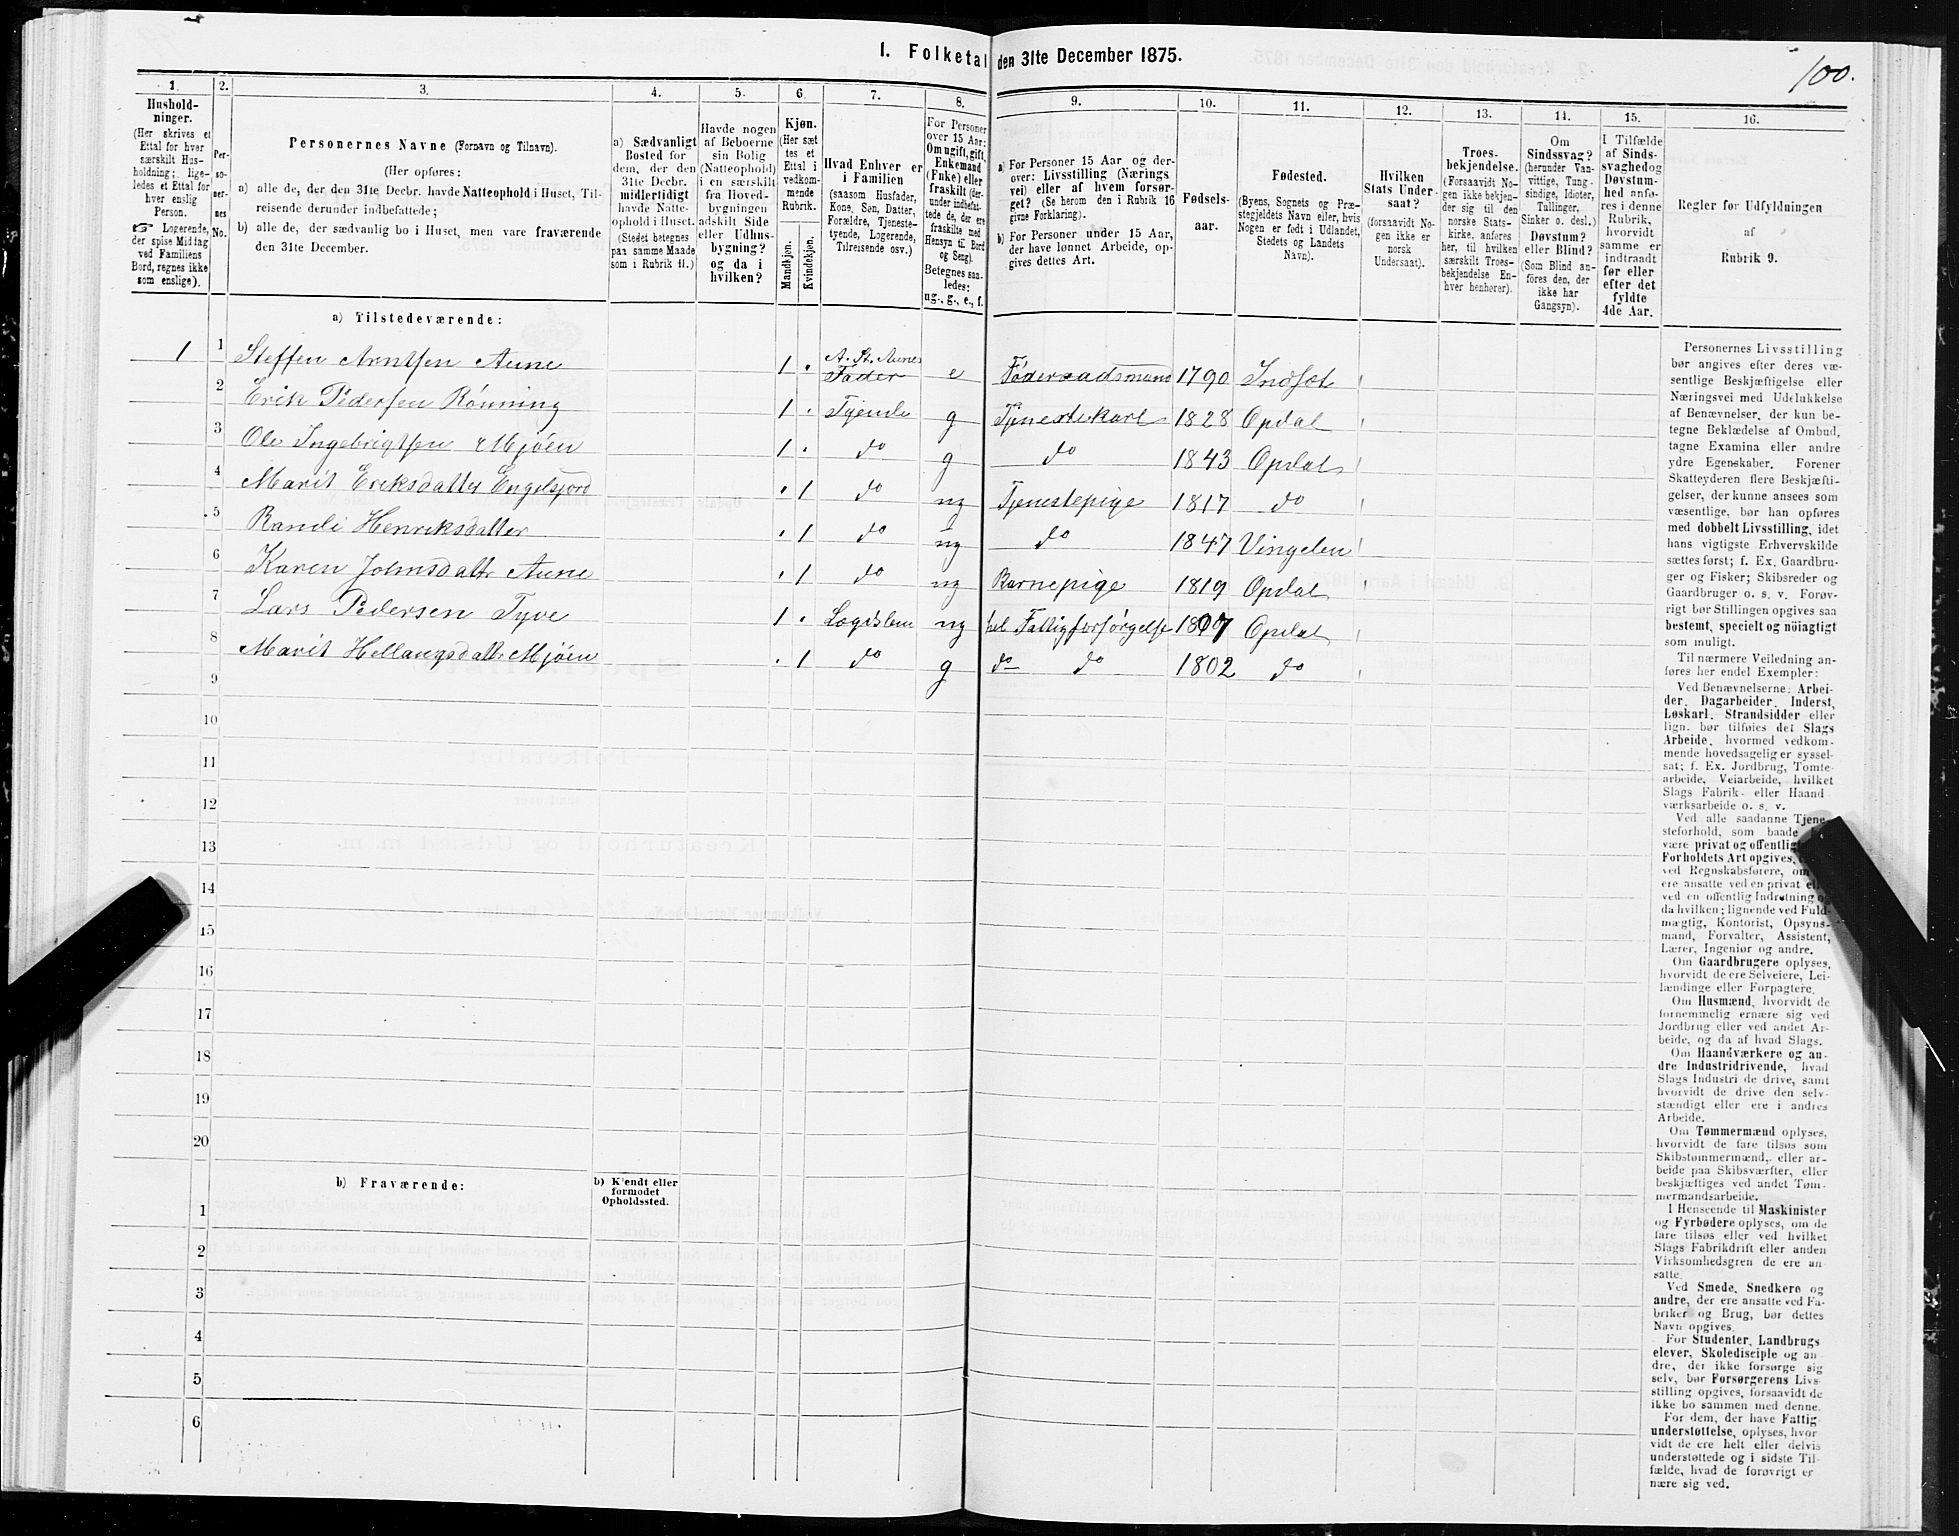 1. Folketal den 31te December 1875.
100.
1. 2. 3. 4. 5. 6. 7. 8. 9. 10. 11. 12. 13. 14. 15. 16.
Hushold-
ninger.
(Her skrives et
Ettal for hver
særskilt Hus-
holdning; lige-
ledes et Ettal for
hver enslig
Person.
☞ Logerende,
der spise Middag
ved Familiens
Bord, regnes ikke
som enslige).
Per-
so-
ner-
nes
No.
Personernes Navne (Fornavn og Tilnavn).
(Her opføres:
a) alle de, der den 31te Decbr. havde Natteophold i Huset, Til-
reisende derunder indbefattede;
b) alle de, der sædvanlig bo i Huset, men vare fraværende
den 31te December.
a) Sædvanligt
Bosted for
dem, der den
31te Decbr.
midlertidigt
havde Natte-
ophold i Huset.
(Stedet betegnes
paa samme Maade
som i Rubrik 11.)
Havde nogen
af Beboerne
sin Bolig
(Natteophold)
i en særskilt
fra Hoved-
bygningen
adskilt Side
eller Udhus-
bygning?
og da i
hvilken?
Kjøn.
(Her sæt
tes et
Ettal i
vedkom-
mende
Rubrik.
Mandkjøn.
Kvindekjøn.
Hvad Enhver er
i Familien
(saasom Husfader,
Kone, Søn, Datter,
Forældre, Tjeneste-
tyende, Logerende,
Tilreisende osv.)
For Personer
over 15 Aar:
Om ugift, gift,
Enkemand
(Enke) eller
fraskilt (der-
under indbefat-
tede de, der ere
fraskilte med
Hensyn til Bord
og Seng).
Betegnes saa-
ledes:
ug., g., e., f.
a) For Personer 15 Aar og der-
over: Livsstilling (Nærings
vei) eller af hvem forsør-
get? (Se herom den i Rubrik 16
givne Forklaring).
b) For Personer under 15 Aar,
der have lønnet Arbeide, op-
gives dettes Art.
Fødsels-
aar.
Fødested.
(Byens, Sognets og Præ-
stegjeldets Navn eller, hvis
Nogen er født i Udlandet,
Stedets og Landets
Navn).
Hvilken
Stats Under-
saat?
(forsaavidt No-
gen ikke er
norsk
Undersaat).
Troes-
bekjendelse.
(Forsaavidt No-
gen ikke bekjen-
der sig til den
norske Stats-
kirke, anføres
her, til hvilken
særskilt Troes-
bekjendelse En-
hver henhører).
Om
Sindssvag?
(herunder Van-
vittige, Tung-
sindige, Idioter,
Tullinger,
Sinker o. desl.)
Døvstum?
eller Blind?
(Som Blind an-
føres den, der
ikke har
Gangsyn).
I Tilfælde
af Sinds-
svaghed og
Døvstum-
hed anfø-
res i denne
Rubrik,
hvorvidt
samme er
indtraadt
før eller
efter det
fyldte
4de Aar.
Regler for Udfyldningen
af
Rubrik 9.
a) Tilstedeværende:
1 1 Steffen Arntsen Aune 1 . A. St. Aunes Fader e Føderaadsmand 1790 Indset
2 Erik Pedersen Rønning 1 . Tyende g Tjenestekarl 1828 Opdal
3 Ole Ingebrigtsen Mjøen 1 . do g do 1843 Opdal
4 Marit Eriksdatter Engelsjord . 1 do ug Tjenestepige 1817 do
5 Randi Henriksdatter . 1 do ug do 1847 Vingelen
6 Karen Johnsdatr Aune . 1 do ug Barnepige 1819 Opdal
7 Lars Pedersen Tyve 1 . Lægdslem ug hel Fattigforsørgelse 1807 Opdal
8 Marit Hellangsdatr Mjøen . 1 do g do do 1802 do
9
10
11
12
13
14
15
16
17
18
19
20
b) Fraværende:
b) Kjendt eller
formodet
Opholdssted.
1
2
3
4
5
6
Personernes Livsstilling
bør angives efter deres væ-
sentlige Beskjæftigelse eller
Næringsvei med Udelukkelse
af Benævnelser, der kun be-
tegne Beklædelse af Ombud,
tagne Examina eller andre
ydre Egenskaber. Forener
Skatteyderen flere Beskjæfti-
gelser, der kunne ansees som
væsentlige, bør han opføres
med dobbelt Livsstilling, idet
hans vigtigste Erhvervskilde
sættes først; f. Ex. Gaardbru-
ger og Fisker; Skibsreder og
Gaardbruger o. s. v. Forøv-
rigt bør Stillingen opgives saa
bestemt, specielt og nøiagtigt
som muligt.
Til nærmere Veiledning an-
føres her endel Exempler:
Ved Benævnelserne: Arbei-
der, Dagarbeider, Inderst,
Løskarl, Strandsidder eller
lign. bør tilføies det Slags
Arbeide, hvormed vedkom-
mende hovedsagelig er syssel-
sat; f. Ex. Jordbrug, Tomte-
arbeide, Veiarbeide, hvilket
Slags Fabrik- eller Haand
værksarbeide o. s. v.
Ved alle saadanne Tjene-
steforhold, som baade
være privat og offentlig
Forholdets Art opgives,
ved Regnskabsførere, om
ere ansatte ved en privat
ved en offentlig Indretning
da hvilken; lignende ved Fuld-
mægtig, Kontorist, Opsyns-
mand, Forvalter, Assistent,
Lærer, Ingeniør og andre.
Om Gaardbrugere oplyses,
hvorvidt de ere Selveiere, Lei-
lændinge eller Forpagtere.
Om Husmænd, hvorvidt de
fornemmelig ernære sig ved
Jordbrug eller ved andet Ar-
beide, og da af hvad Slags.
Om Haandværkere og an-
dre Industridrivende, hvad
Slags Industri de drive, samt
hvorvidt de drive den selv-
stændigt eller ere i andres
Arbeide.
Om Tømmermænd oplyses,
hvorvidt de fare tilsøs som
Skibstømmermænd, eller ar-
beide paa Skibsværfter, eller
beskjæftiges ved andet Tøm-
mermandsarbeide.
I Henseende til Maskinister
og Fyrbødere oplyses, om de
fare tilsøs eller ved hvilket
Slags Fabrikdrift eller anden
Virksomhedsgren de ere an-
satte.
Ved Smede, Snedkere og
andre, der ere ansatte ved Fa-
briker og Brug, bør dettes
Navn opgives.
For Studenter, Landbrugs
elever, Skoledisciple og an-
dre, der ikke forsørge sig
selv, bør Forsørgerens Livs-
stilling opgives, forsaavidt de
ikke bo sammen med denne.
For dem, der have Fattig-
understøttelse, oplyses, hvor
vidt de ere helt eller delvis
understøttede og i sidste Til-
fælde, hvad de forøvrigt er
nære sig ved.